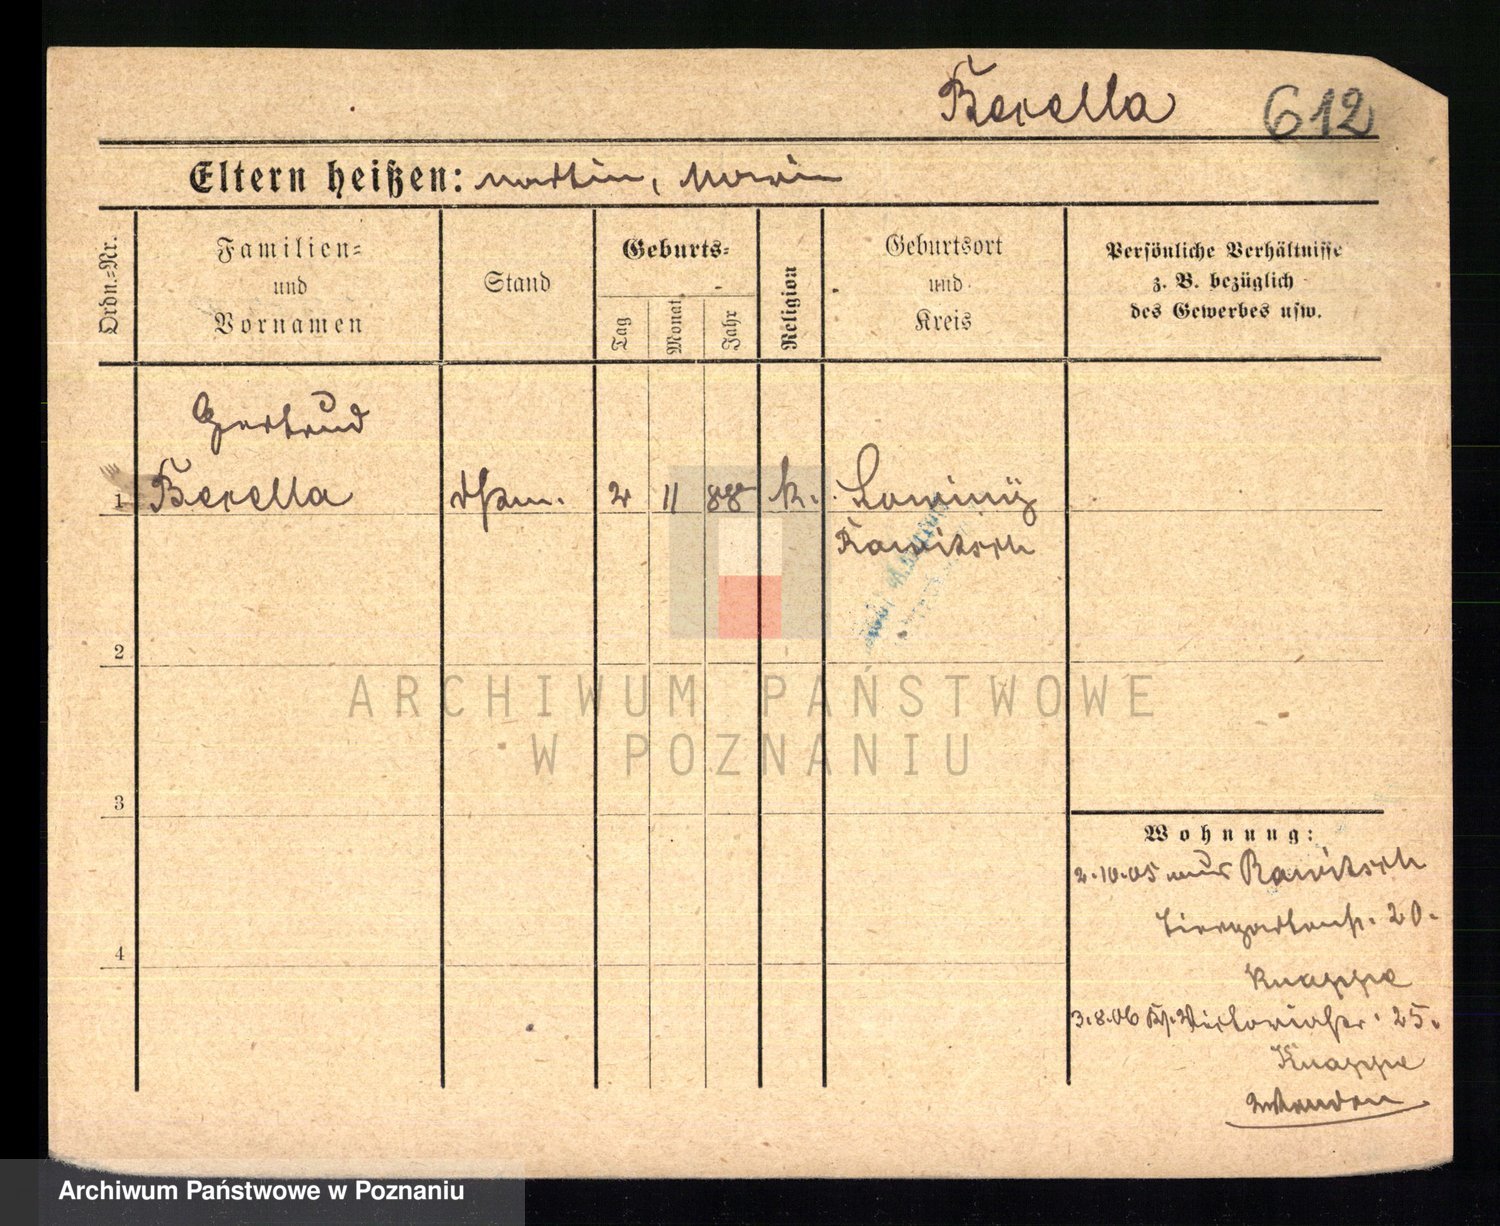 Berella 612
Eltern heißen: Martin, Maria
Ordn.-Nr.
Familien-
und
Vornamen
Stand
Geburts-
Tag
Monat
Jahr
Religion
Geburtsort
und
Kreis
Persönliche Verhältnisse
z. B. bezüglich
des Gewerbes usw.
Gertrud
1 Berella 2 11 88 k.
Rawitsch
2
3
4
Wohnung:
2.10.05 aus Rawitsch
Tiergartenstr. 20.
Knappe
3.8.06 Victoriastr. 25.
Knappe
ARCHIWUM PAŃSTWOWE
W POZNANIU
Archiwum Państwowe w Poznaniu